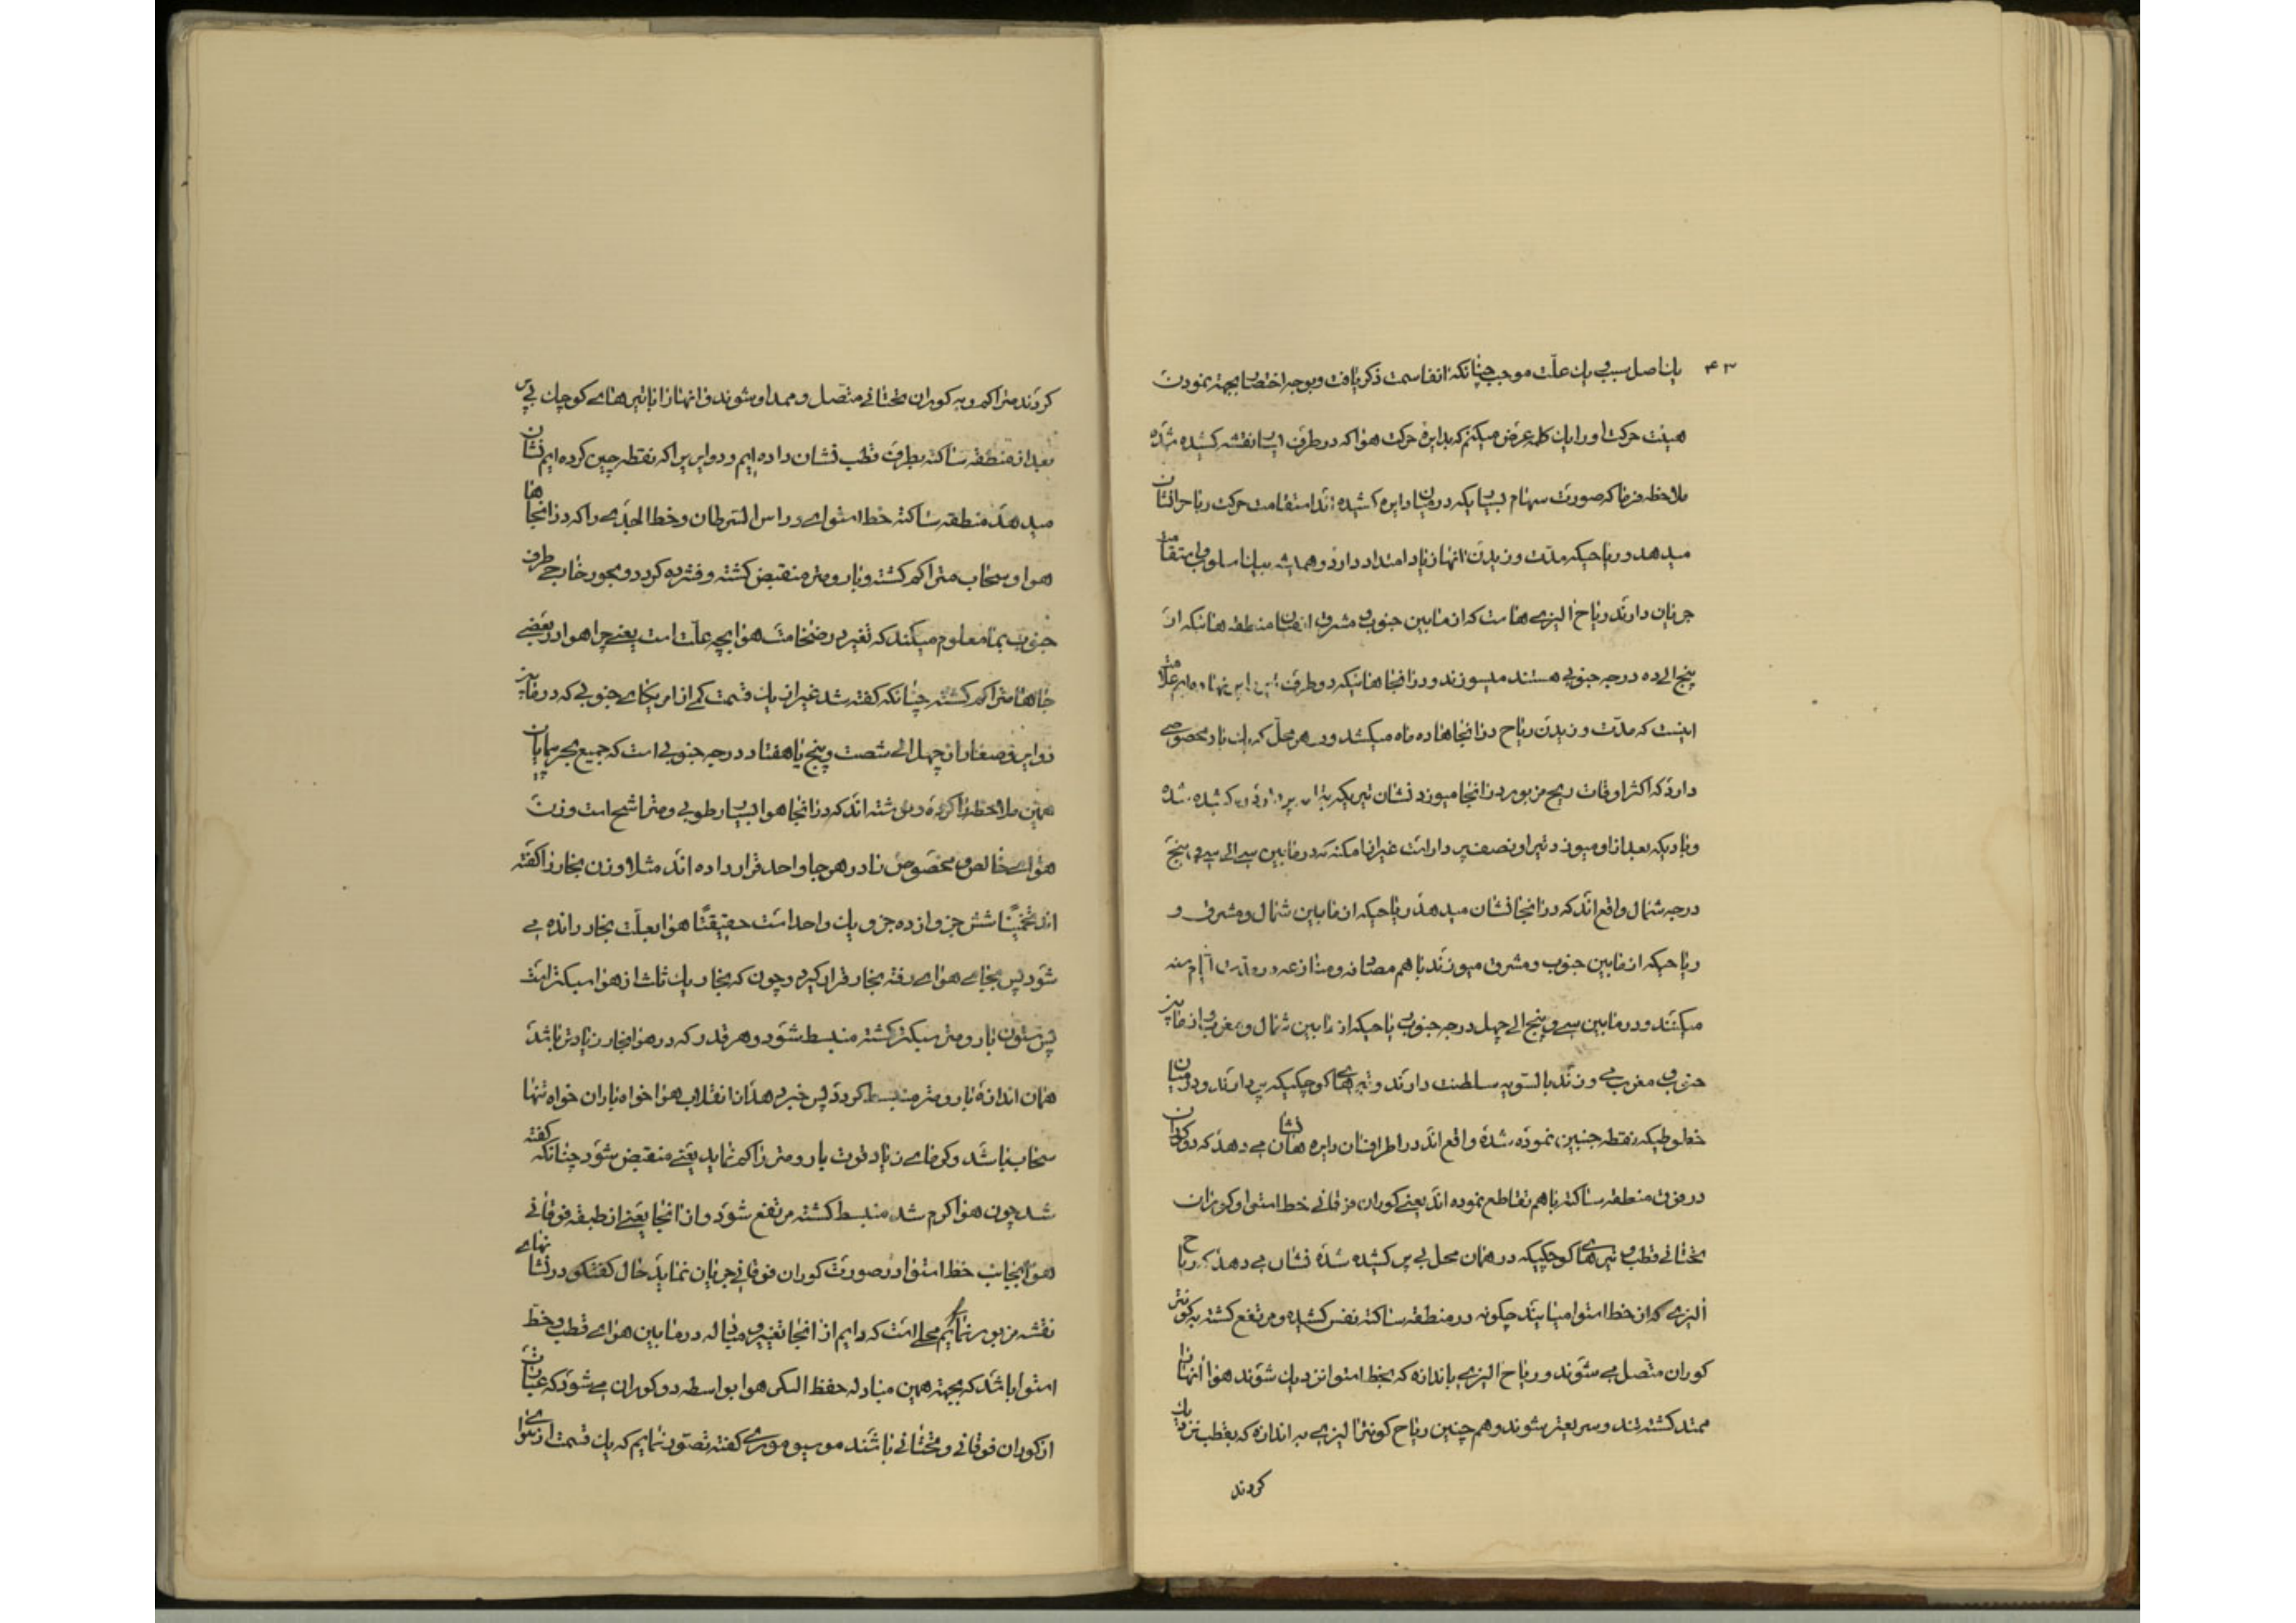 ۴۳
باین اصل سببی یک علّت موجب چنانکه انفا سمت ذکر یافت و بوجه اختصار بجهة نمودن
هیئت حرکت اورا باین کلمه عرض میکنم که بدایرهٔ حرکت هوا که در طرف این نقشه کشیده شده
ملاحظه فرما که صورت سهام بسیاریکه در میان دایره کشیده اند استقامت حرکت ریاح را نشان
میدهد و ریاحیکه مدّت وزیدن انها زیاد امتداد دارد و همیشه بیک اسلوب و استقامت
جریان دارند ریاح الیزی هاست که از مابین جنوب و مشرق منطقه هائیکه از
پنج الی ده درجه جنوبی هستند میوزند و در انجا هائیکه در طرف این نهاده ایم علامت
اینست که مدّت وزیدن ریاح در انجاها ده ماه میکشد و در هر محل که یک باد مخصوصی
دارد که اکثر اوقات ریح مزبور در انجا میوزد نشان تیریکه کشیده شده
و بادیکه بعد از او میوزد تیر او نصف پر دار است غیر از امکنه که در مابین سی الی سی و پنج
درجه شمال واقع اند که در انجا نشان میدهد ریاحیکه از مابین شمال و مشرق و
ریاحیکه از مابین جنوب و مشرق میوزند با هم مصادفه و منازعه در
میکنند و در مابین سی و پنج الی چهل درجه جنوب ریاحیکه از مابین شمال و مغرب و از مابین
جنوب و مغرب می وزند بالسّویه سلطنت دارند و تیرهای کوچکیکه پر دارند و در میان
خطوطیکه نقطه چنین نموده شده واقع اند در اطراف ان دایره ها نشان می دهد که دو کوران
در فوق منطقه ساکته باهم تقاطع نموده اند یعنی کوران فوقانی خط استوا و کوران
تحتانی قطب و تیرهای کوچکیکه در همان محل بی پر کشیده شده نشان می دهد که ریاح
الیزی که از خط استوا میایند چگونه در منطقه ساکته نفس کشیده و مرتفع گشته به کونتر
کوران متّصل می شوند و ریاح الیزی باندازه که بخط استوا نزدیک شوند هوا از انها
ممتد گشته تند و سریعتر شوند و هم چنین ریاح کونترا الیزی به اندازه که بقطب نزدیک
کردند
کردند متراکم و به کوران تحتانی متّصل و ممد او شوند و انها را با تیرهای کوچک بی پر
بعد از منطقه ساکته بطرف قطب نشان داده ایم و دوایریرا که نقطه چین کرده ایم نشان
میدهد منطقه ساکته خط استوای و راس السّرطان و خط الجدی را که در انجاها
هوا و سحاب متراکم گشته و بارومتر منقبض گشته و فشرده کردد و بجور خارجی طرف
جنوب بما معلوم میکند که تغییر در ضخامت هوا بچه علّت است یعنی چرا هوا در بعضی
جاها متراکم گشته چنانکه گفته شد غیر از یک قسمت کمی از امریکای جنوبی که در مابین
دوایر و صفار از چهل الی شصت و پنج یا هفتاد درجه جنوبی است که جمیع بحر پیمایان
همین ملاحظه را کرده و نوشته اند که در انجا هوا بسیار رطوبی و متراشح است وزن
هوای خالص و مخصوص را در هر جا واحد قرار داده اند مثلا وزن بخار را گفته
اند تخمینًا شش جزو از ده جزو یک واحد است حقیقتًا هوا بعلّت بخار رانده می
شود پس بجای هوای رفته بخار قرار گیرد و چون که بخار یک ثلث از هوا سبکتر است
پس ستون بارومتر سبکتر گشته منبسط شود و هر قدر که در هوا بخار زیادتر باشد
همان اندازه بارومتر منبسط کردد پس خبر دهد از انقلاب هوا خواه باران خواه تنها
سحاب باشد و کرمای زیاد قوت بارومتر را کم نماید یعنی منقبض شود چنانکه گفته
شد چون هوا کرم شد منبسط گشته مرتفع شود و از انجا یعنی از طبقه فوقانی
هوا بجانب خط استوا در صورت کوران فوقانی جریان نماید حال گفتگو در نشانهای
نقشه مزبور نمائیم محلی است که دایم از انجا تغییر و مبادله در مابین هوای قطب و خط
استوا باشد که بجهة همین مبادله حفظ السکی هوا بواسطه دو کوران می شود که عبارت
از کوران فوقانی و تحتانی باشند موسیو موری گفته تصوّر نمایم که یک قسمت از هوای